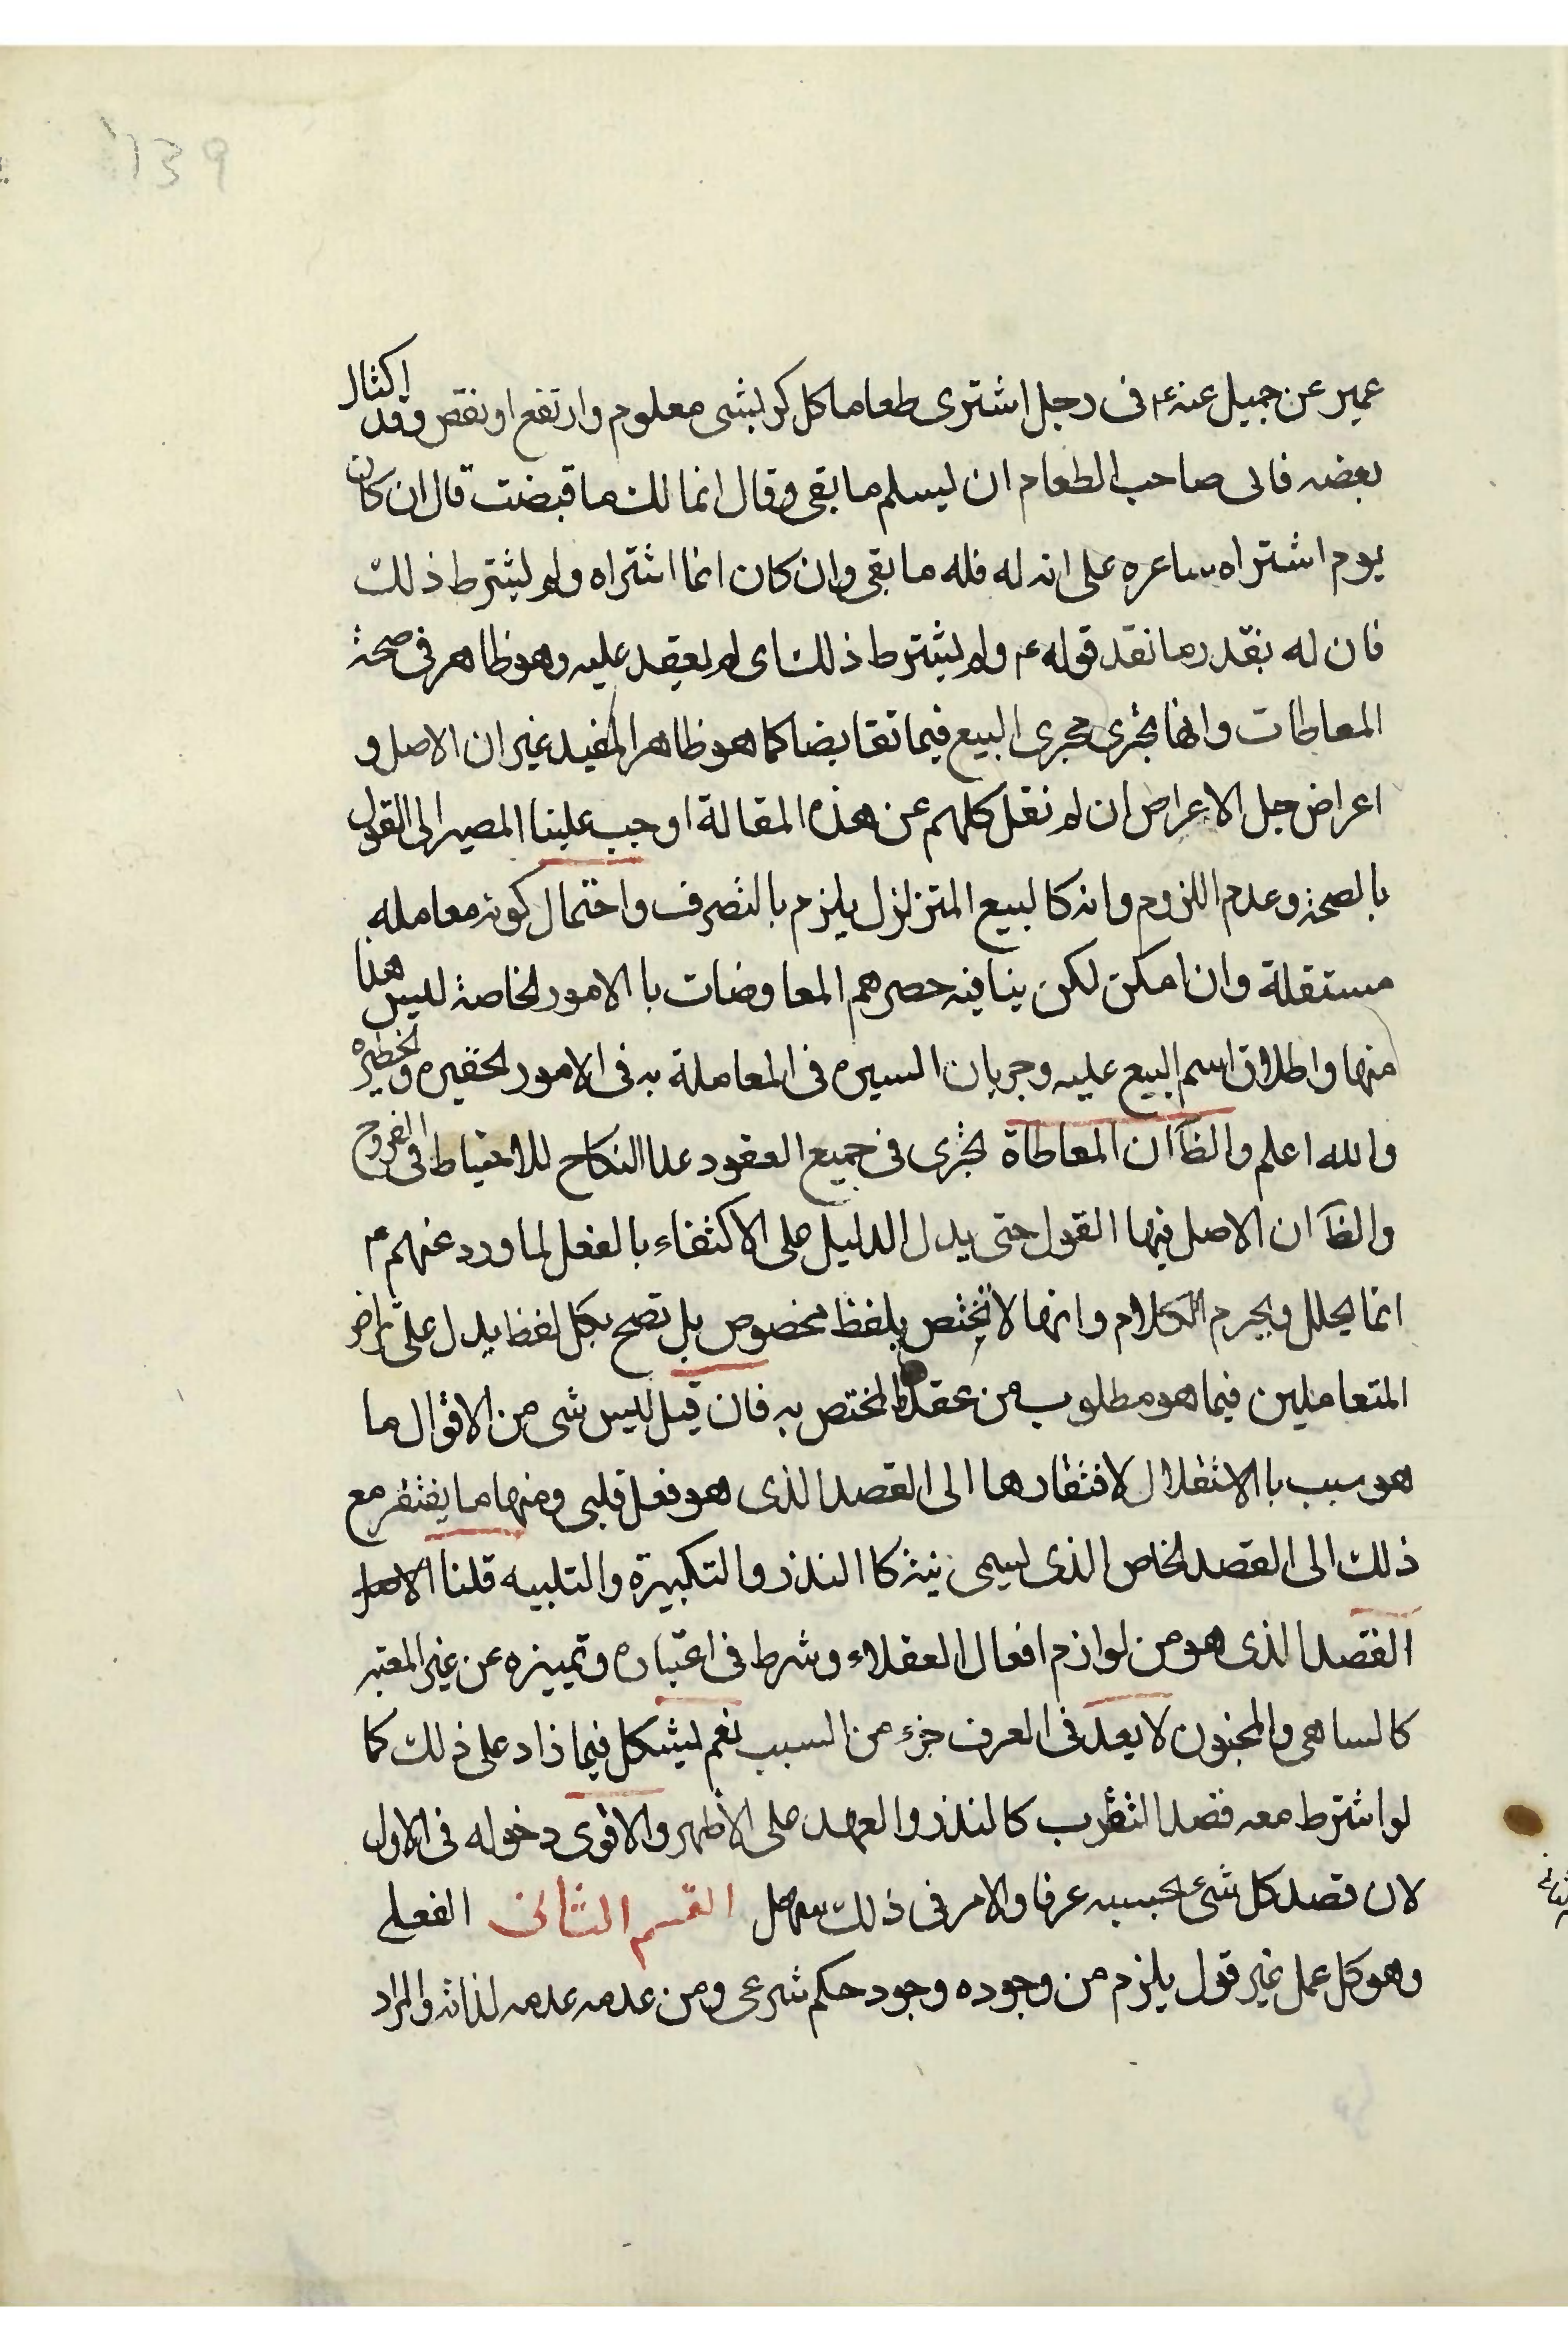 139
عمير عن جميل عنه ع في رجل اشترى طعاما كل كر بشى معلوم وارتفع او نقص وقد اكتال
بعضه فابى صاحب الطعام ان يسلم ما بقى وقال انما لك ما قبضت قال ان كان
يوم اشتراه ساعره على انه له فله ما بقى وان كان انما اشتراه ولم يشترط ذلك
فان له بقدر ما نقد قوله ع ولم يشترط ذلك اى لم يعقد عليه وهو ظاهر فى صحة
المعاطات وانها تجرى مجرى البيع فيما تقابضا كما هو ظاهر المفيد غير ان الاصل و
اعراض جل الاعراض ان لم نقل كلهم عن هذه المقالة اوجب علينا المصير الى القول
بالصحة وعدم اللزوم وانه كالبيع المتزلزل يلزم بالتصرف واحتمال كونه معاملة
مستقلة وان امكن لكن ينافيه حصرهم المعاوضات باالامور الخاصة ليس هذا
منها واطلاق اسم البيع عليه وجريان السيره فى المعاملة به فى الامور الحقيره والخطيره
والله اعلم والظآ ان المعاطاة تجرى فى جميع العقود عدا النكاح للاحتياط فى الفروج
والظآ ان الاصل فيها القول حتى يدل الدليل على الاكتفاء بالفعل لما ورد عنهم ع
انما يحلل ويحرم الكلام وانها لا تختص بلفظ مخصوص بل تصح بكل لفظ يدل على تراض
المتعاملين فيما هو مطلوب من عقد المختص به فان قيل ليس شى من الاقوال ما
هو سبب باالاستقلال لافتقارها الى القصد الذى هو فعل قلبى ومنها ما يفتقر مع
ذلك الى القصد الخاص الذى يسمى نية كاالنذر والتكبيرة والتلبيه قلنا الاصل
القصد الذى هو من لوازم افعال العقلاء وشرط فى اعتباره وتمييزه عن غير المعتبر
كالساهى والمجنون لا يعد فى العرف جزء من السبب نعم يشكل فيما زاد على ذلك كما
لو اشترط معه قصد التقرب كالنذر والعهد على الاظهر والاقوى دخوله فى الاول
لان قصد كل شئ بحسبه عرفا والامر فى ذلك سهل القسم الثانى الفعلى
وهو كل عمل غير قول يلزم من وجوده وجود حكم شرعى ومن عدمه عدمه لذاته والمراد